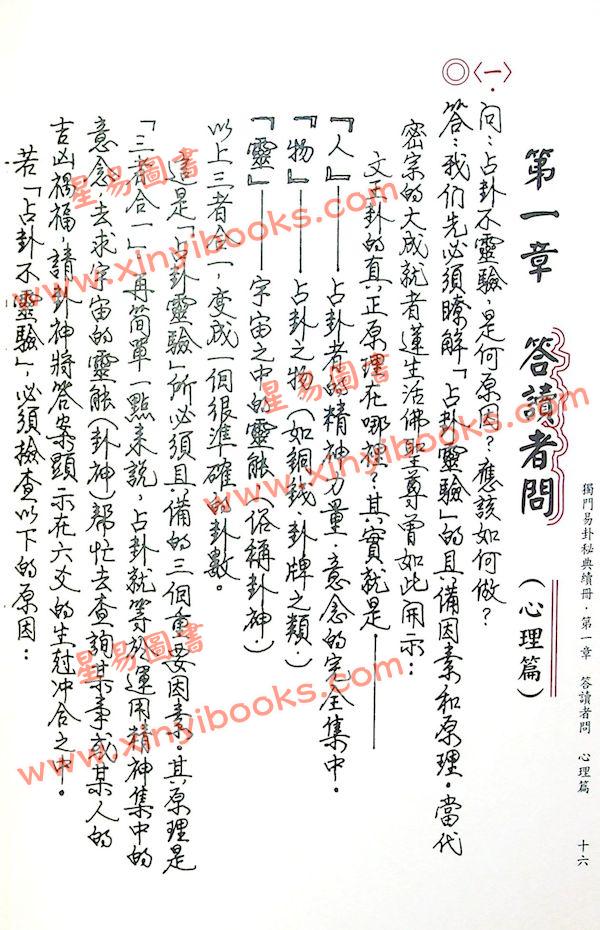 獨門易卦秘典續冊·第一章 答讀者問 心理篇 十六
第一章 答讀者問 (心理篇)
◎〈一〉·問:占卦不靈驗,是何原因?應該如何做?
答:我们先必須瞭解「占卦靈驗」的具備因素和原理。當代
密宗的大成就者蓮生活佛聖尊曾如此開示:
文王卦的真正原理在哪裡?其實就是——
『人』——占卦者的精神力量·意念的完全集中。
『物』——占卦之物(如銅錢卦牌之類·)
『靈』——宇宙之中的靈能(俗稱卦神·)
以上三者合一,变成一個很準確的卦數。
這是「占卦靈驗」所必須具備的三個重要因素。其原理是
「三者合一」再简單一點来説,占卦就等於運用精神集中的
意念,去求宇宙的靈能(卦神)幫忙去查詢某事或某人的
吉凶禍福,請卦神將答案顯示在六爻的生尅冲合之中。
若「占卦不靈驗」,必須檢查以下的原因:
星易圖書
www.xinyibooks.com
星易圖書
www.xinyibooks.com
星易圖書
www.xinyibooks.com